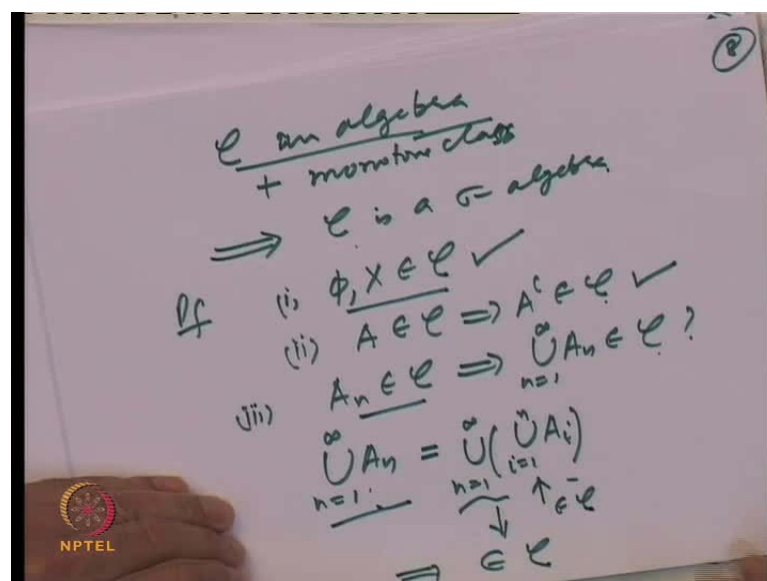 8
C an algebra
+ monotone class
⟹ C is a σ-algebra
Pf (i) ϕ, X ∈ C ✓
(ii) A ∈ C ⟹ A^c ∈ C ✓
(iii) A_n ∈ C ⟹ ∪_{n=1}^∞ A_n ∈ C ?
∪_{n=1}^∞ A_n = ∪_{n=1}^∞ (∪_{i=1}^n A_i)
↑ ∈ C
↓
⟹ ∈ C
NPTEL